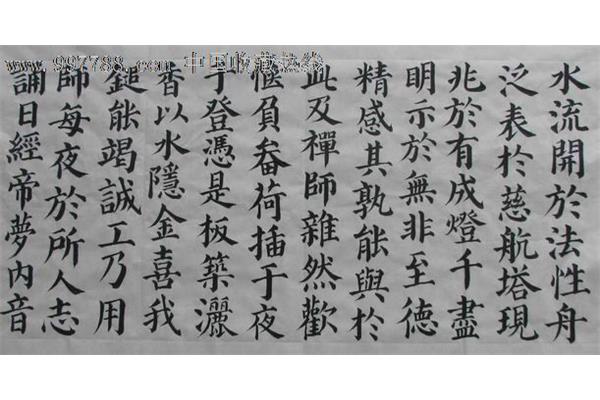 www.997788.com 中国收藏热线
水流開於法性舟
泛表於慈航塔現
兆於有成燈千盡
明示於無非至德
精感其孰能與於
此及禪師雜然歡
愜負畚荷插于夜
于登憑是板築灑
香以水隱金喜我
鎚能竭誠工乃用
師每夜於所人志
誦日經帝夢内音